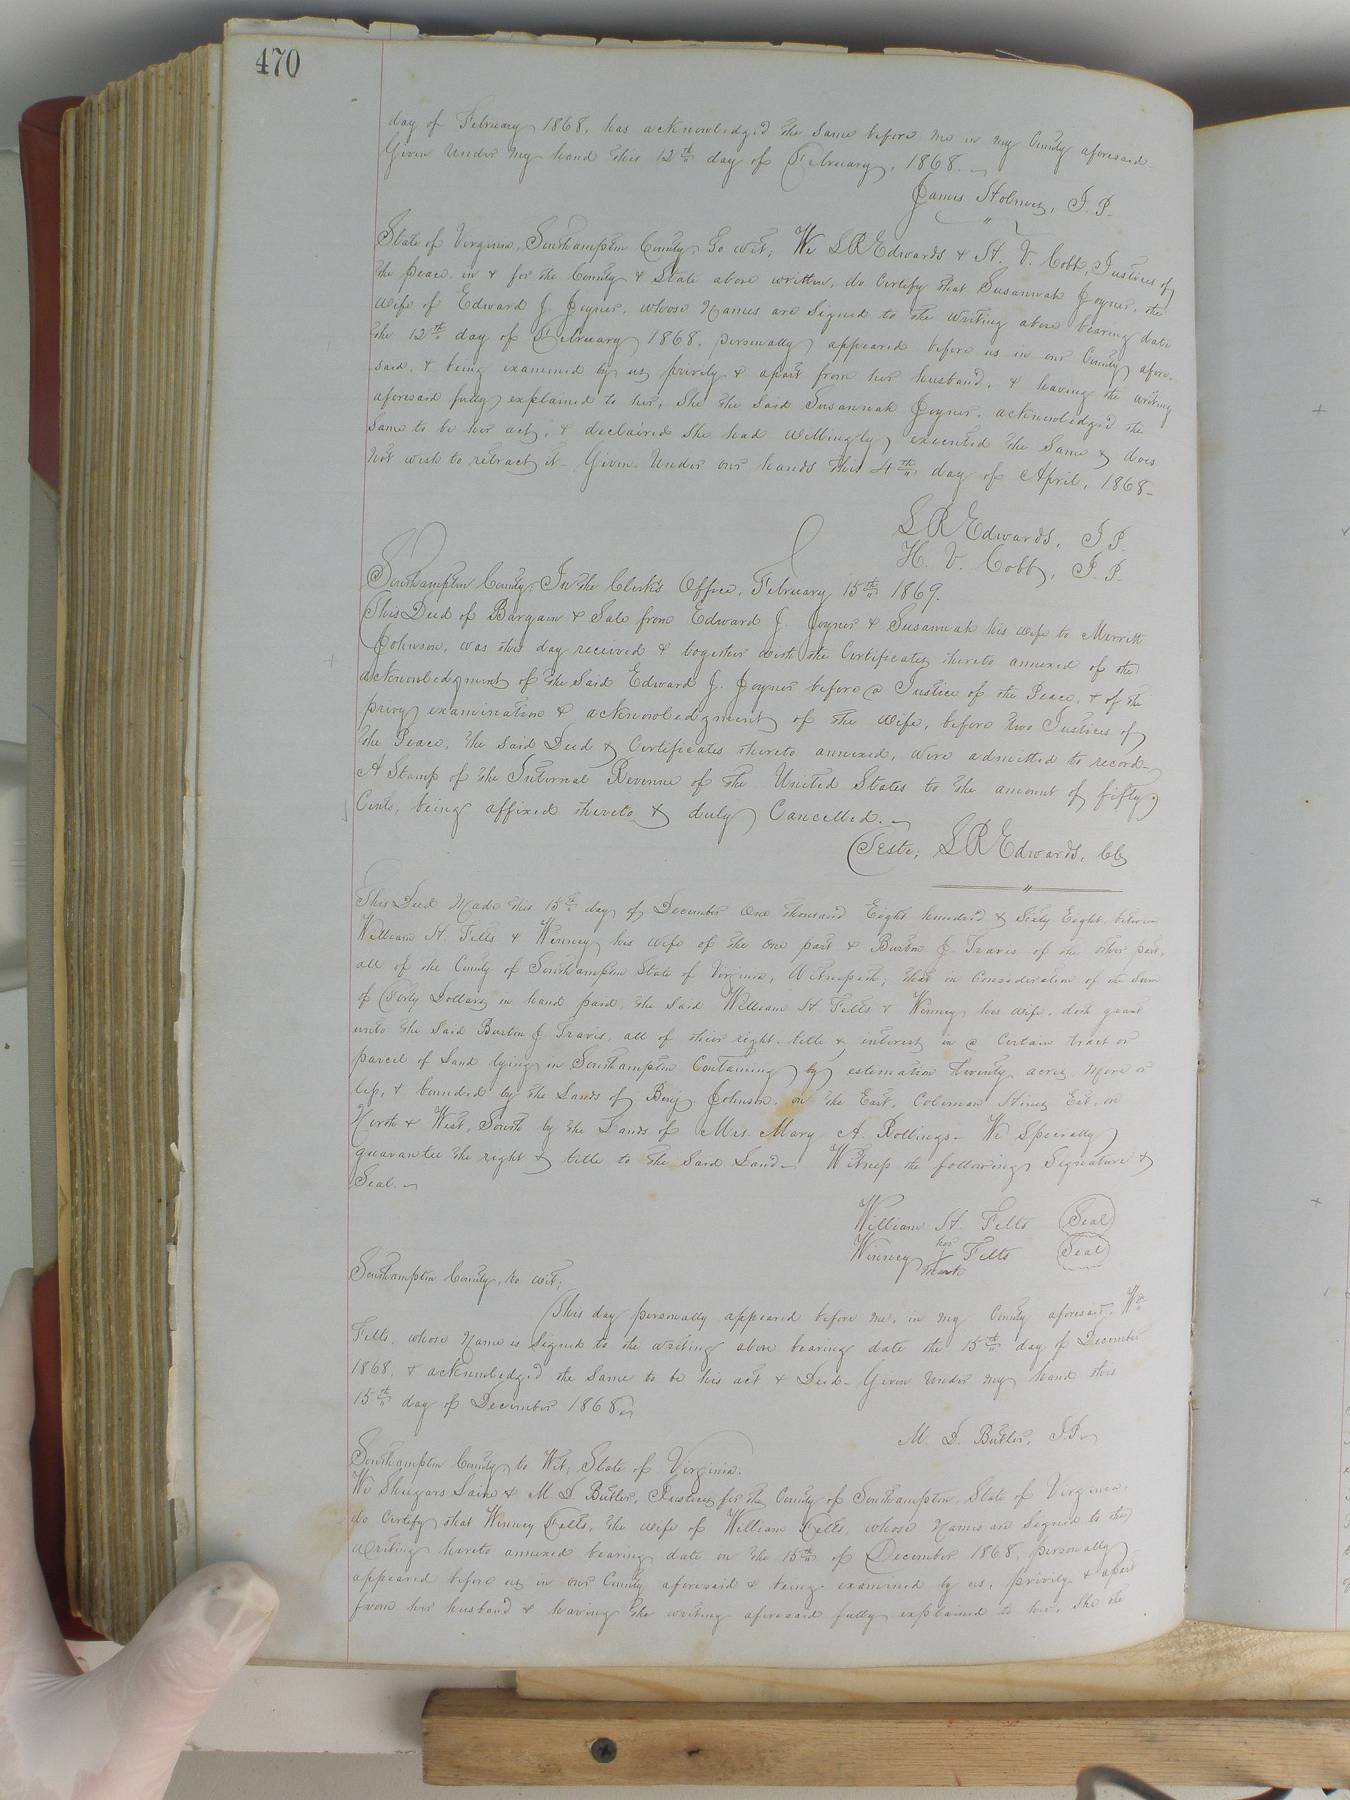 470
day of February 1868, has acknowledged the same before me in my County aforesaid.
Given under my hand this 12th day of February, 1868.
James Holmes, J. P.
State of Virginia, Southampton County, to wit; We L R Edwards & H. V. Cobb, Justices of
the peace in & for the County & State above written, do certify that Susannah Joyner, the
wife of Edward J. Joyner, whose names are signed to the writing above bearing date
the 12th day of February 1868, personally appeared before us in our County afore-
said, & being examined by us privily & apart from her husband, & having the writing
aforesaid fully explained to her, She the said Susannah Joyner, acknowledged the
same to be her act, & declaired she had willingly executed the same & does
not wish to retract it. Given under our hands this 4th day of April, 1868-
L R Edwards, J P.
H. V. Cobb, J. P.
Southampton County; In the Clerk's Office, February 15th 1869.
This Deed of Bargain & Sale from Edward J. Joyner & Susannah his wife to Merritt
Johnson, was this day received & together with the Certificates thereto annexed of the
acknowledgment of the said Edward J. Joyner before a Justice of the Peace, & of the
privy examination & acknowledgment of the wife, before two Justices of
the Peace, the said Deed & Certificates thereto annexed, were admitted to record-
A Stamp of the Internal Revenue of the United States to the amount of fifty
Cents, being affixed thereto & duly Cancelled.
Teste; L R Edwards, CC
This Deed Made this 15th day of December One thousand Eight hundred & Sixty Eight, between
William H. Felts & Winney his wife of the one part & Burton J. Travis of the other part,
all of the County of Southampton State of Virginia, Witnesseth; that in Consideration of the sum
of Forty Dollars in hand paid, the said William H Felts & Winney his wife, doth grant
unto the said Burton J. Travis, all of their right, title & interest in a certain tract or
parcel of Land lying in Southampton Containing by estimation twenty acres more or
less, & bounded by the Lands of Benj. Johnson, on the East, Coleman Est, on
North & West, South by the Lands of Mrs. Mary A. Rollings- We Specially
guarantee the right & title to the said Land- Witness the following Signature &
Seal.
William H Felts (Seal)
Winney her Felts (Seal)
mark
Southampton County, to wit;
This day personally appeared before me, in my County aforesaid, Wm
Felts, whose name is signed to the writing above bearing date the 15th day of December
1868, & acknowledged the same to be his act & Deed- Given under my hand this
15th day of December 1868
M. D. Butler, J.P.
Southampton County to Wit; State of Virginia.
We & M. D Butler, Justices for the County of Southampton, State of Virginia,
do certify that Winney Felts, the wife of William Felts, whose names are signed to the
writing hereto annexed bearing date on the 15th of December 1868, personally
appeared before us in our County aforesaid & being examined by us, privily & apart
from her husband & having the writing aforesaid fully explained to her, She the